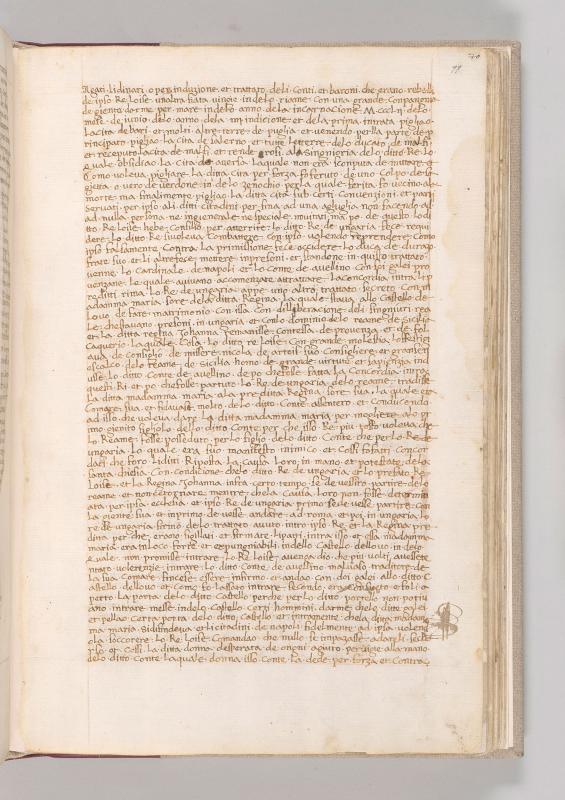 Regati. li dinari. o per induzione. et trattato. deli. Conti. et baroni. che erano. rebelli
de ipso Re. Loise. unaltra fiata. vingie. indelo. riame. con una grande. Conpangnia
de giente. darme. per. mare. indelo. anno. dela. incarnacione. M. ccc Lij. delo
mese. de iunio. delo. anno. dela. indicione. et dela. prima. intrata. pigliao
La cita. de bari. et molti. altre. terre. de puglia. et venendo. per la parte. de p
rincipato. pigliao. la cita. de salerno. et tutte. le terre. dello. ducato. de malfi
et receputo. la cita. de malfi. et rende. rosi. ala singnioria. dello ditto Re. lo
quale. obsidiao. La cita. de aversa. La quale. non era
Como voleva. pigliare. La ditta. cita. per. forza. fo feruto. de uno. Colpo. de s
gietta. o vero. de verdone. in delo. zenochio. per la quale. ferita. fo. vecino. ala
morte. ma. finalimente. pigliao. La ditta. cita. sub certi. Convenzioni. et pacti
servati. per ipso. ali ditti. Citadini. per fina. ad una. aguglia. non facendo. al
ad nulla. persona. ne ingienerale. ne speciale. ma po. de questo. lo di
tto. Re. Loise. hebe. Consillio. per. atterrire. lo ditto. Re. de ungaria. fece. requi
dere. lo ditto. Re. si voleva. Combattere. con ipso. volendo. reprendere. Como
ipso. falsamente. Contra. La primissione. fece occidere. lo duca. de durazo
frate. suo. et li altri fece. mettere. impresoni. et stando ne. in quisto. trattato.
venne. lo Cardinale. de napoli. et lo Conte. de avellino. con soi galei. pro
venzane. Le quale. avivano. accomenzare. attrattare. La concordia. intra. li p
rediti. rima. Lo Re. de ungaria. appe uno. altro. trattato. secreto. con
adamma. maria. sore. dela. ditta. Regina. La quale. stava. allo Castello de
Lovo. de fare. matrimonio. con issa. con dilliberacione. deli singniuri. rea
le. che stavano. presoni. in ungaria. et con lo dominio. delo. reame. de Sicilia
et La ditta. regina. Johanna. remanisse. Contessa. de provenza. et de fol
caquerio. La quale. Cosa. lo ditto. re. Loise. con grande. molestia. lo
eava. de consiglio. de missere. nicola. de. suo Consigliere. et gran seni
escalco. delo reame. de Sicilia. homo. de grande. virtute. et sapienza. ind
usse. lo ditto. Conte. de avellino. de po. che fosse. fatta. La Concordia. intra.
questi Ri. et po. che fosse. partuto. Lo Re. de ungaria. delo. reame. tradisse
La ditta. madamma. maria. ala pre ditta Regina. sore. sua. La quale. era
Comare. sua. et fidavase. molto. delo ditto. Conte. et Conducendo
ad illo. che voleva. dare. La ditta. madamma. maria. per mogliere. alo pr
imo. gienito figliolo. delo ditto. Conte. per che isso. Re. piu. tosto. voleva. che
lo Reame. fosse. posseduto. per lo figlio. delo ditto. Conte. che per lo Re de
ungaria. Lo quale. era. suo manifesto. inimico. et Cossi fo fatti. Concor
dati. che foro. li ditti. Riposta. la Causa. Loro. in mano. et potestate. dela.
santa. chiesia. Con condicione. che lo ditto. Re. de ungaria. et lo prefato. Re
Loise. et La Regina. Johanna. infra. certo. tempo. se devessero. partire. delo
reame. et non ce tornare. mentre. che la. Causa. Loro. non fosse. determin
ata. per ipsa. ecclesia. et ipso. Re. de ungaria. primo. se devesse. partire. con
La giente. sua. et in primo. devesse. andare. ad roma. et poi. in ungaria. lo
re de ungaria. ferino. delo trattato. avuto. intro. ipso. Re. et la Regina. pre
ditta. per che. erano. sigillati. et firmate. li patti. intra. isso. et essa. madamma.
maria. era in loco. forte. et expungniabili. indello. Castello. dellovo. in delo
quale. non. promisse. intrare. Lo Re. Loise. avenga. dio. che piu. volti. avesse te
ntato. volerencze. intrare. Lo ditto. Conte. de avellino. malivaso. traditore. de
La sua. Comare. fincese. essere. infirmo. et andao. con doi galei. allo ditto C
astello. dellovo. et come. fo lassato. intrare. secondo. era et foli a
perto. La porta. delo ditto. Castello. perche per lo ditto. portello. non potiv
ano. intrare. messe. indelo. Castello. certi hommini. darme. chele. ditte. galei
et pellao. certa. porta. delo ditto. Castello. et intramente. chela. ditta. madam
ma. maria. et li citadini. de napoli. fidelmente. ad ipsa. volend
ola. soccorere. Lo Re. Loise. Comandao. che nullo. se impazasse. adarli. secur
rso. et Cossi. La ditta. donna. desperata. de ongni. agiuto. pervinne. alla mano.
delo ditto. Conte. La quale. donna. isso. Conte. La dede. per forza. et Contra